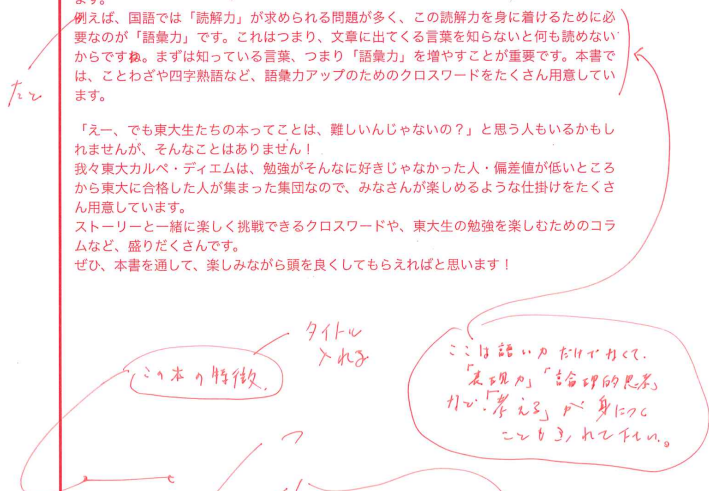 ます。
例えば、国語では「読解力」が求められる問題が多く、この読解力を身に着けるために必
要なのが「語彙力」です。これはつまり、文章に出てくる言葉を知らないと何も読めない
からですね。まずは知っている言葉、つまり「語彙力」を増やすことが重要です。本書で
は、ことわざや四字熟語など、語彙力アップのためのクロスワードをたくさん用意してい
ます。
たと
「えー、でも東大生たちの本ってことは、難しいんじゃないの？」と思う人もいるかもし
れませんが、そんなことはありません！
我々東大カルペ・ディエムは、勉強がそんなに好きじゃなかった人・偏差値が低いところ
から東大に合格した人が集まった集団なので、みなさんが楽しめるような仕掛けをたくさ
ん用意しています。
ストーリーと一緒に楽しく挑戦できるクロスワードや、東大生の勉強を楽しむためのコラ
ムなど、盛りだくさんです。
ぜひ、本書を通して、楽しみながら頭を良くしてもらえればと思います！
タイトル
入れる
この本の特徴
ここは語い力だけでなくて、
「表現力」「論理的思考」
など、「考える」が身につく
こともふれて下さい。